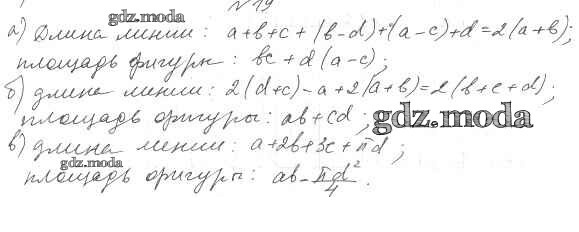 N 19
gdz.moda
а) Длина линии: a+b+c+(b-d)+(a-c)+d=2(a+b);
площадь фигуры: bc+d(a-c);
б) длина линии: 2(d+c)-a+2(a+b)=2(b+c+d);
площадь фигуры: ab+cd; gdz.moda
в) длина линии: a+2b+3c+πd;
gdz.moda
площадь фигуры: ab-πd²/4.